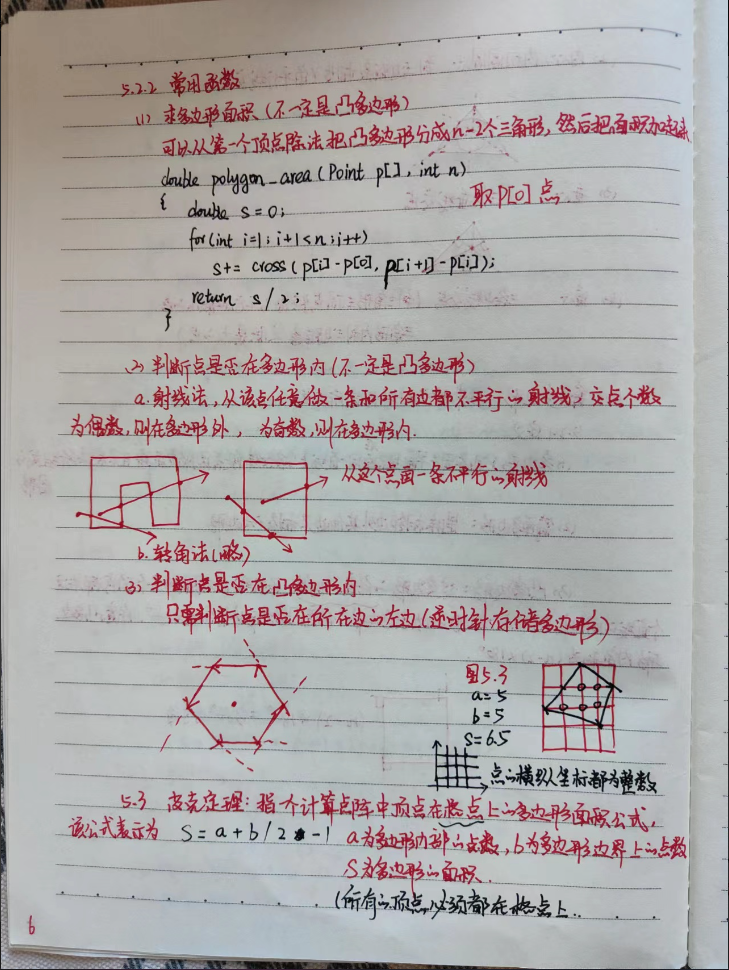 5.2.2 常用函数
(1) 求多边形面积(不一定是凸多边形)
可以从第一个顶点除法把凸多边形分成n-2个三角形,然后把面积加起来
double polygon_area(Point p[], int n)
{
取P[0]点
double s=0;
for(int i=1;i+1<n;i++)
s+= cross(p[i]-p[0], p[i+1]-p[i]);
return s/2;
}
(2) 判断点是否在多边形内(不一定是凸多边形)
a.射线法,从该点任意做一条和所有边都不平行的射线,交点个数
为偶数,则在多边形外, 为奇数,则在多边形内.
从这个点画一条不平行的射线
b.转角法(略)
(3) 判断点是否在凸多边形内
只需判断点是否在所在边的左边(逆时针存储多边形)
图5.3
a=5
b=5
S=6.5
点的横纵坐标都为整数
5.3 皮克定理:指个计算点阵中顶点在格点上的多边形面积公式,
该公式表示为 S=a+b/2-1 a为多边形内部的点数,b为多边形边界上的点数
S为多边形的面积.
(所有的顶点必须都在格点上..
6